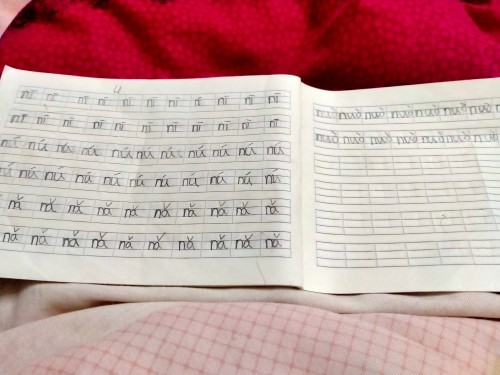 nī nī nī nī nī nī nī nī nī nī nī
nī nī nī nī nī nī nī nī nī nī nī
nú nú nú nú nú nú nú nú nú nú nú
nú nú nú nú nú nú nú nú nú nú nú
nǎ nǎ nǎ nǎ nǎ nǎ nǎ nǎ nǎ nǎ
nǎ nǎ nǎ nǎ nǎ nǎ nǎ nǎ nǎ nǎ
nuò nuò nuò nuò nuò nuò nuò
nuò nuò nuò nuò nuò nuò nuò